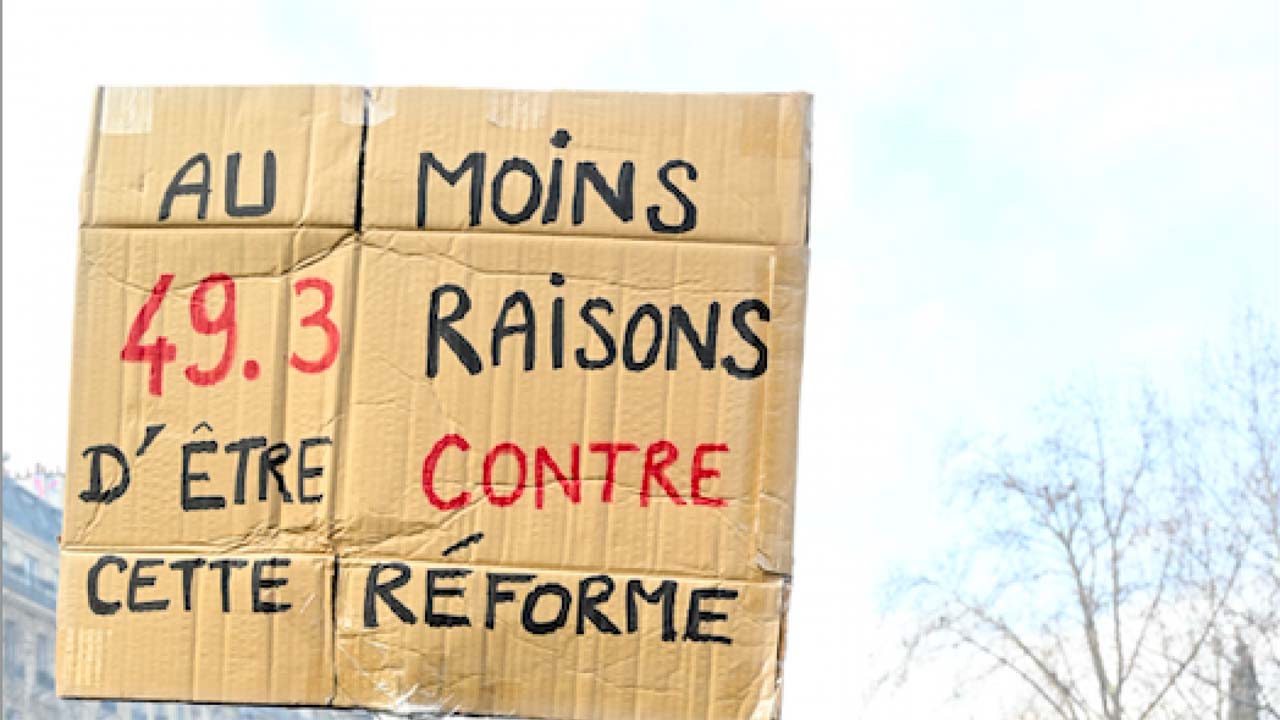 AU MOINS
49.3 RAISONS
D'ÊTRE CONTRE
CETTE RÉFORME